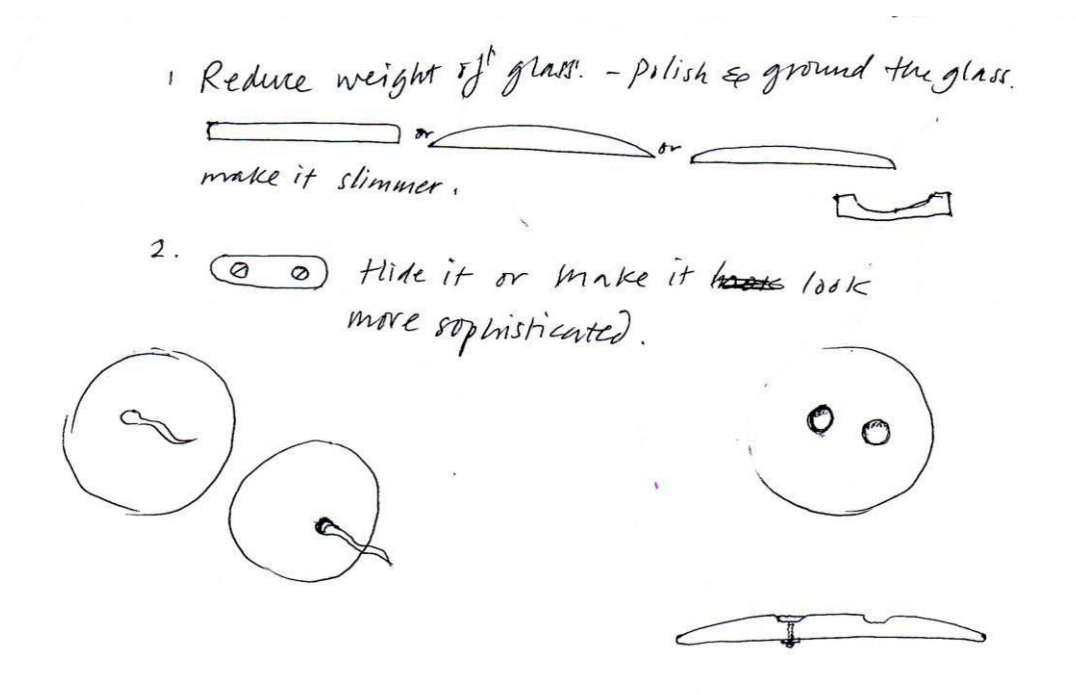 1 Reduce weight of glass. - Polish & ground the glass.
or or
make it slimmer.
2. Hide it or make it look
more sophisticated.